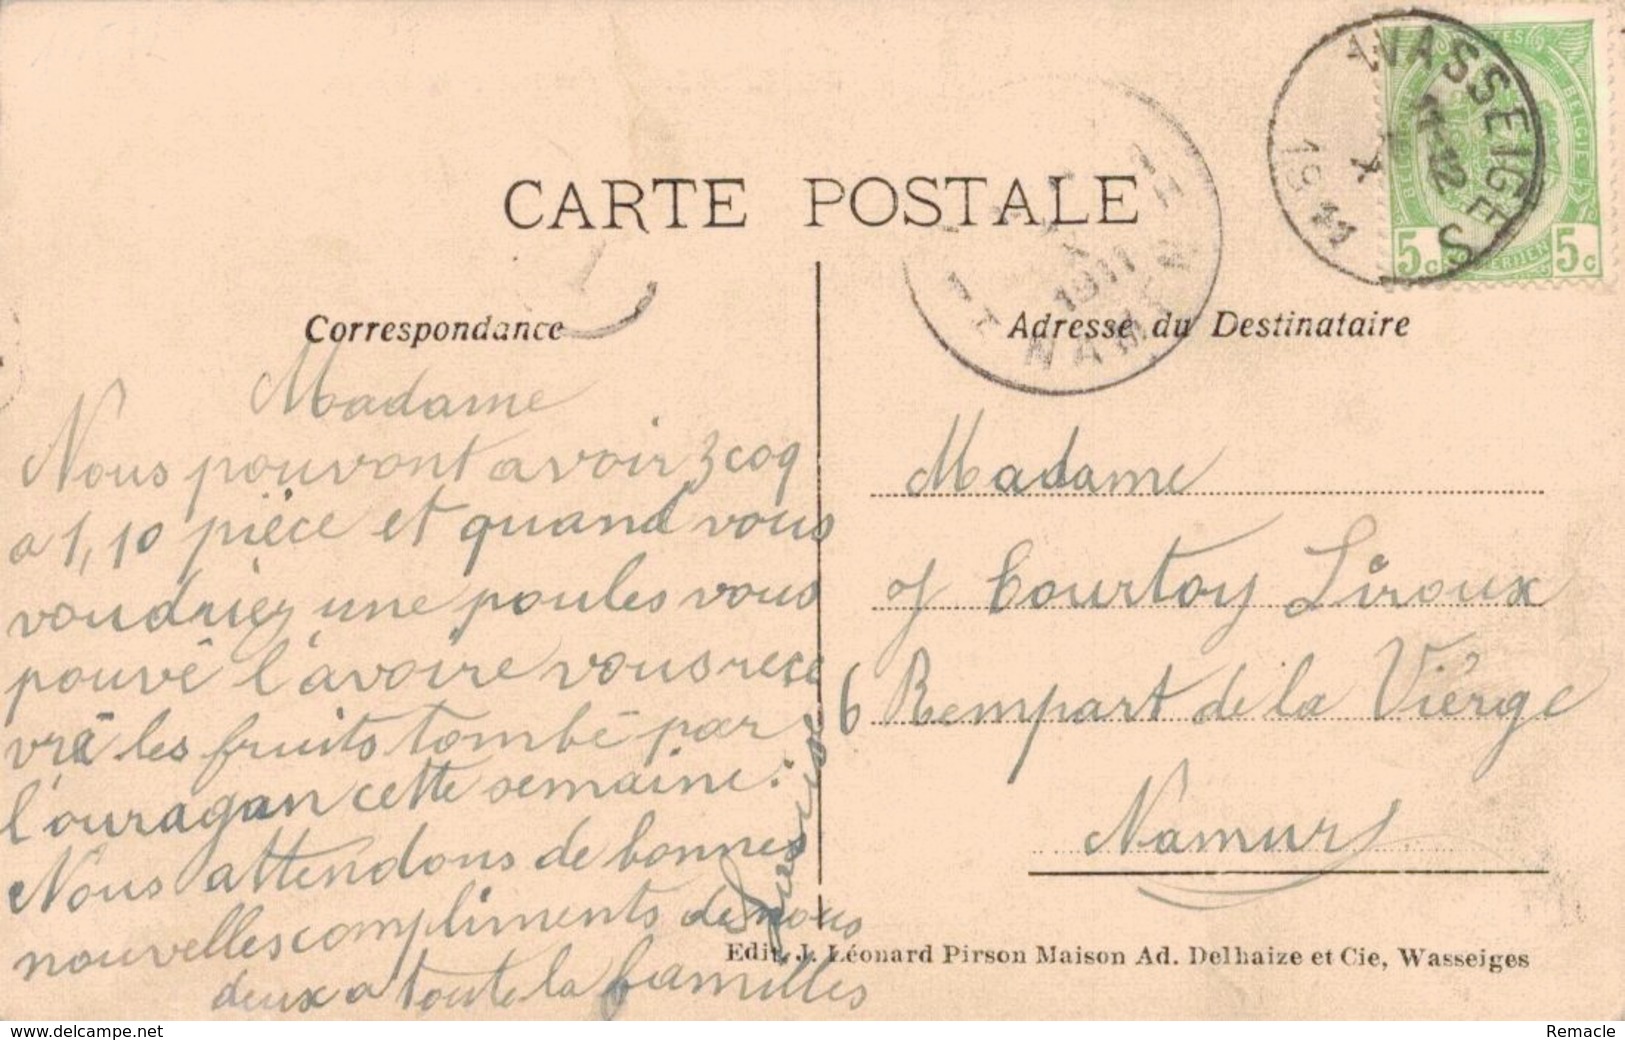 CARTE POSTALE
WASSEIGES
11-12
X
1911
BELGIQUE
BELGIE
5c 5c
NAMUR
X
1911
Correspondance
Madame
Nous pouvont avoir 3 coq
a 1,10 pièce et quand vous
voudriez une poules vous
pouvé l'avoire vous rece
vré les fruits tombé par
l'ouragan cette semaine.
Nous attendons de bonnes
nouvelles compliments de nous
deux a toute la familles
Adresse du Destinataire
Madame
Courtoy Liroux
6 Rempart de la Viérge
Namur
Edit. J. Léonard Pirson Maison Ad. Delhaize et Cie, Wasseiges
www.delcampe.net
Remacle